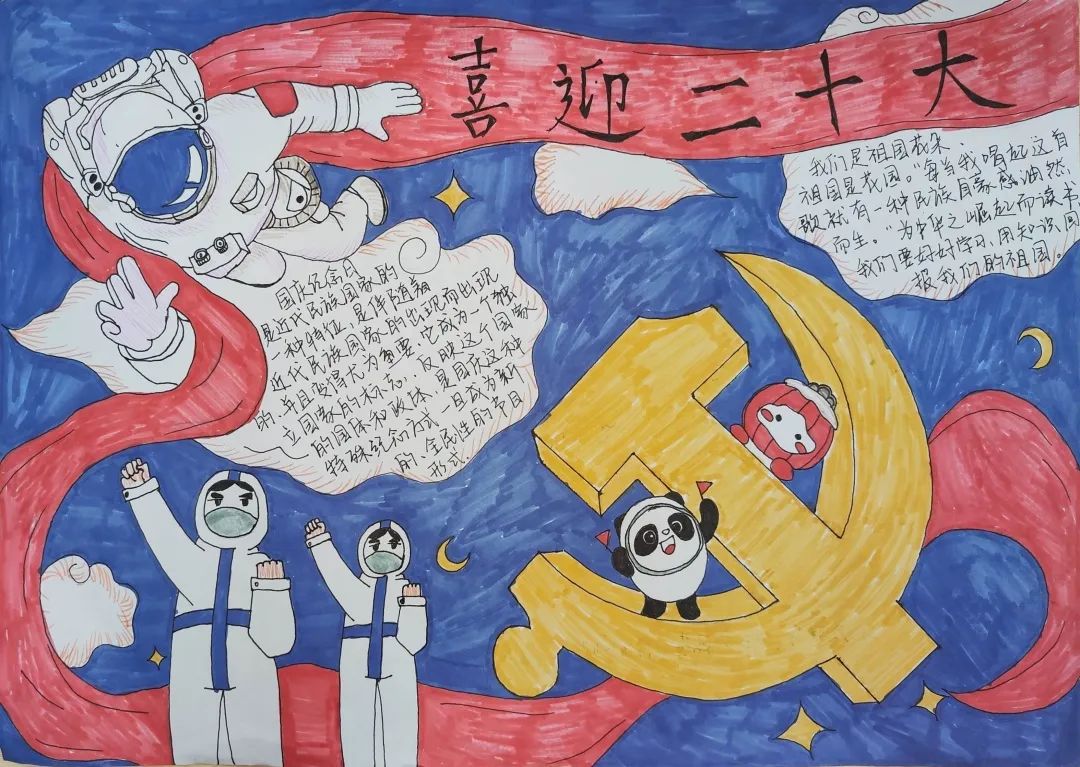 喜迎二十大
我们是祖国花朵，
祖国是花园。"每当我唱起这首
歌就有一种民族自豪感油然
而生。"为中华之崛起而读书"
我们要好好学习，用知识回
报我们的祖国。
国庆纪念日
是近代民族国家的
一种特征，是伴随着
近代民族国家的出现而出现
的，并且变得尤为重要，它成为一个独
立国家的标志，反映这个国家
的国体和政体，是国庆这种
特殊纪念方式一旦成为新
的、全民性的节日
形式，